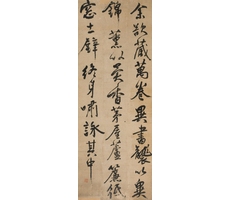 余欲藏萬卷異書襲以異
錦薰以異香茅屋蘆簾紙
窓土壁終身嘯詠其中